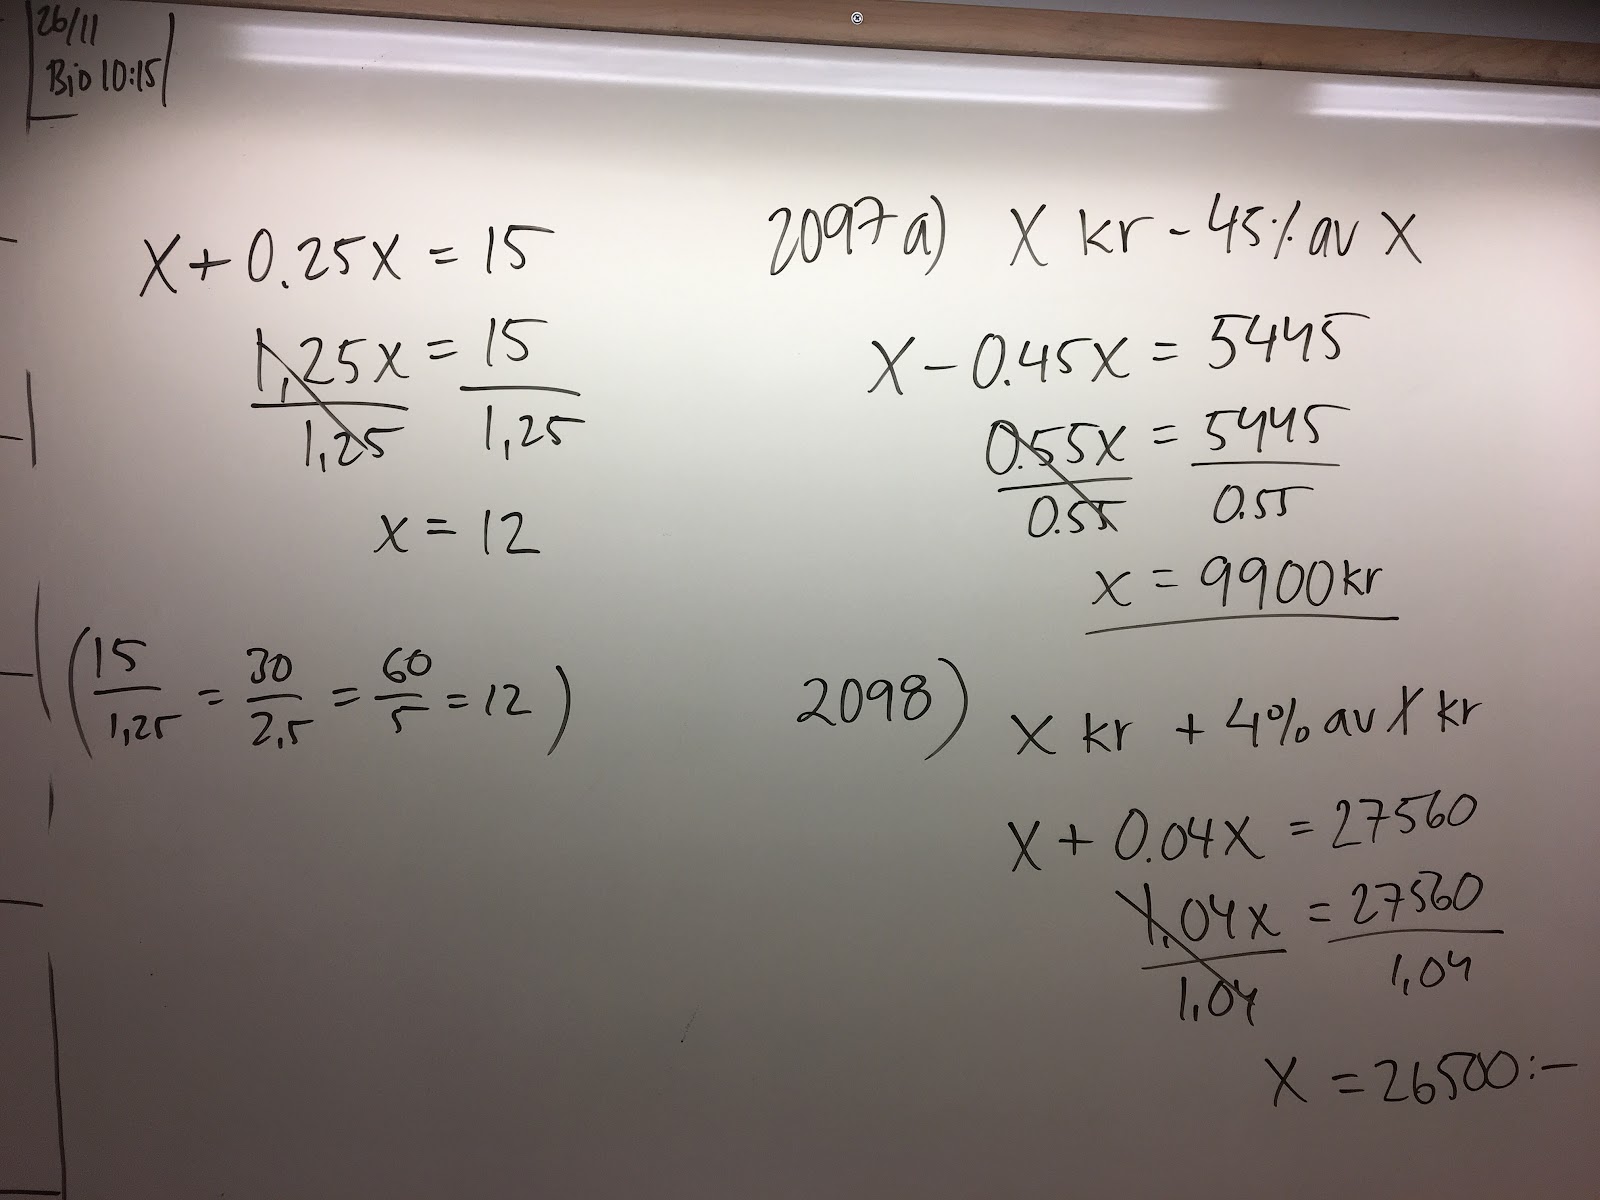 26/11
Bio 10:15
X+0.25X = 15
1,25x = 15
1,25 1,25
x = 12
(15/1,25 = 30/2,5 = 60/5 = 12)
2097 a) X kr - 45% av X
X - 0.45X = 5445
0.55x = 5445
0.55 0.55
x = 9900kr
2098) X kr + 4% av X kr
X + 0.04X = 27560
1.04x = 27560
1.04 1,04
X = 26500:-